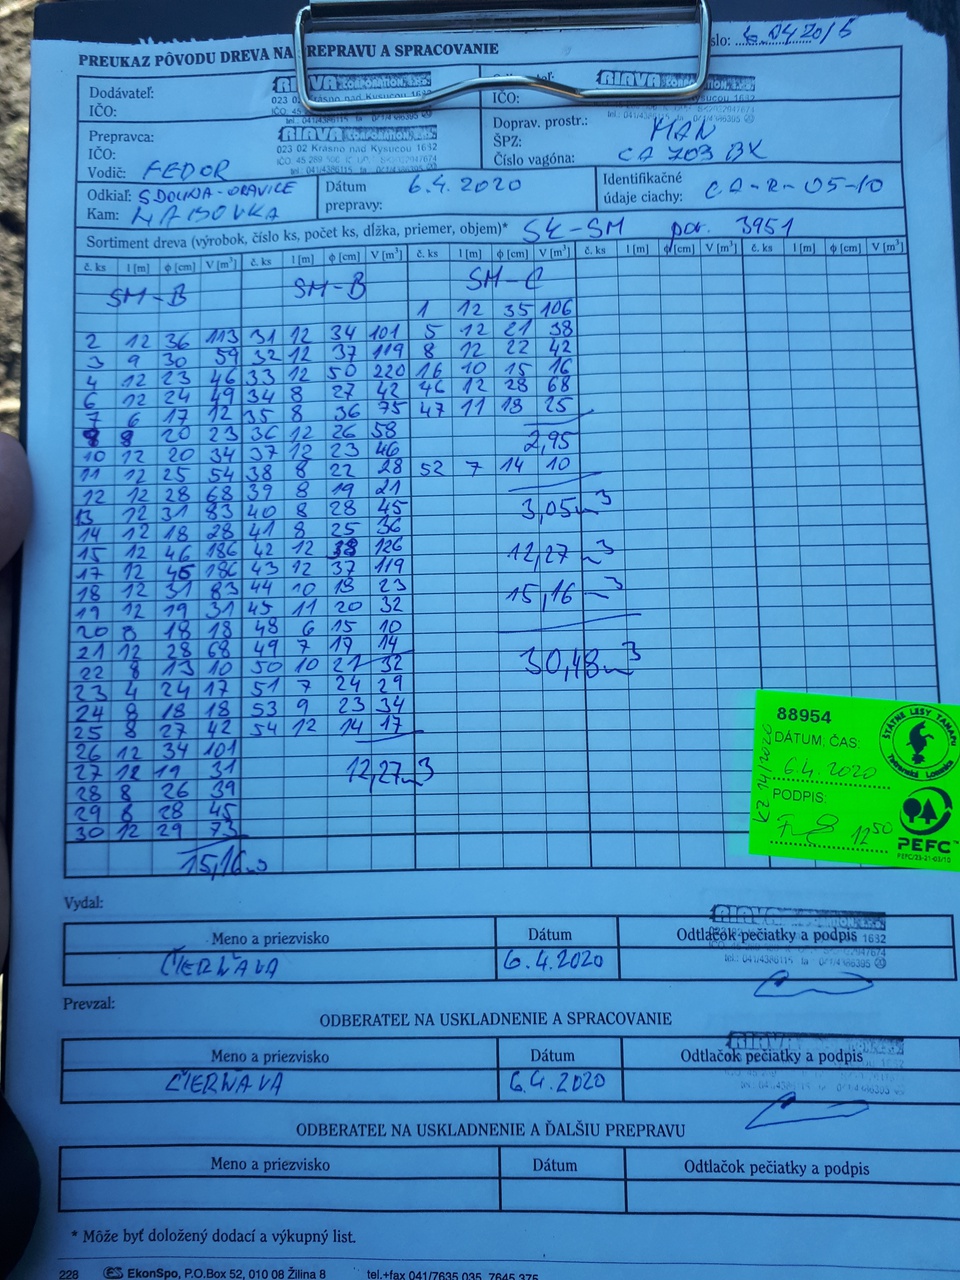 PREUKAZ PÔVODU DREVA NA PREPRAVU A SPRACOVANIE
slo: 6.0420/5
Dodávateľ:
IČO:
RIAVA CORPORATION, s.r.o.
023 02 Krasno nad Kysucou 1632
IČO:
RIAVA CORPORATION, s.r.o.
Prepravca:
IČO:
Vodič: FEDOR
RIAVA CORPORATION, s.r.o.
023 02 Krasno nad Kysucou 1632
Doprav. prostr.: MAN
ŠPZ:
Číslo vagóna: CA 703 BX
Odkiaľ: S DOLINA-ORAVICE
Kam: HABOVKA
Dátum prepravy: 6.4.2020
Identifikačné údaje ciachy: CA-R-05-10
Sortiment dreva (výrobok, číslo ks, počet ks, dĺžka, priemer, objem)* SK-SM por. 3951
č. ks l [m] ϕ [cm] V [m³] č. ks l [m] ϕ [cm] V [m³] č. ks l [m] ϕ [cm] V [m³] č. ks l [m] ϕ [cm] V [m³] č. ks l [m] ϕ [cm] V [m³]
SM-B SM-B SM-C
1 12 35 106
2 12 36 113 31 12 34 101 5 12 21 38
3 9 30 59 32 12 37 119 8 12 22 42
4 12 23 46 33 12 50 220 16 10 15 16
6 12 24 49 34 8 27 42 46 12 28 68
7 6 17 12 35 8 36 75 47 11 18 25
9 8 20 23 36 12 26 58 2,95
10 12 20 34 37 12 23 46
11 12 25 54 38 8 22 28 52 7 14 10
12 12 28 68 39 8 19 21
13 12 31 83 40 8 28 45 3,05m3
14 12 18 28 41 8 25 36
15 12 46 186 42 12 38 126 12,27m3
17 12 46 186 43 12 37 119
18 12 31 83 44 10 18 23 15,16m3
19 12 19 31 45 11 20 32
20 8 18 18 48 6 15 10
21 12 28 68 49 7 17 14 30,48m3
22 8 13 10 50 10 21 32
23 4 24 17 51 7 24 29
24 8 18 18 53 9 23 34
25 8 27 42 54 12 14 17
26 12 34 101
27 12 19 31 12,27m3
28 8 26 39
29 8 28 45
30 12 29 73
15,16m3
88954
ŠTÁTNE LESY TANAPU
Tatranská Lomnica
DÁTUM, ČAS:
6.4.2020
PODPIS:
12 50
KZ 14/2020
PEFC
PEFC/23-21-03/10
Vydal:
Meno a priezvisko Dátum Odtlačok pečiatky a podpis
ČIERŇAVA 6.4.2020
RIAVA
Prevzal:
ODBERATEĽ NA USKLADNENIE A SPRACOVANIE
Meno a priezvisko Dátum Odtlačok pečiatky a podpis
ČIERŇAVA 6.4.2020
ODBERATEĽ NA USKLADNENIE A ĎALŠIU PREPRAVU
Meno a priezvisko Dátum Odtlačok pečiatky a podpis
* Môže byť doložený dodací a výkupný list.
228 EkonSpo, P.O.Box 52, 010 08 Žilina 8 tel.+fax 041/7635 035, 7645 375